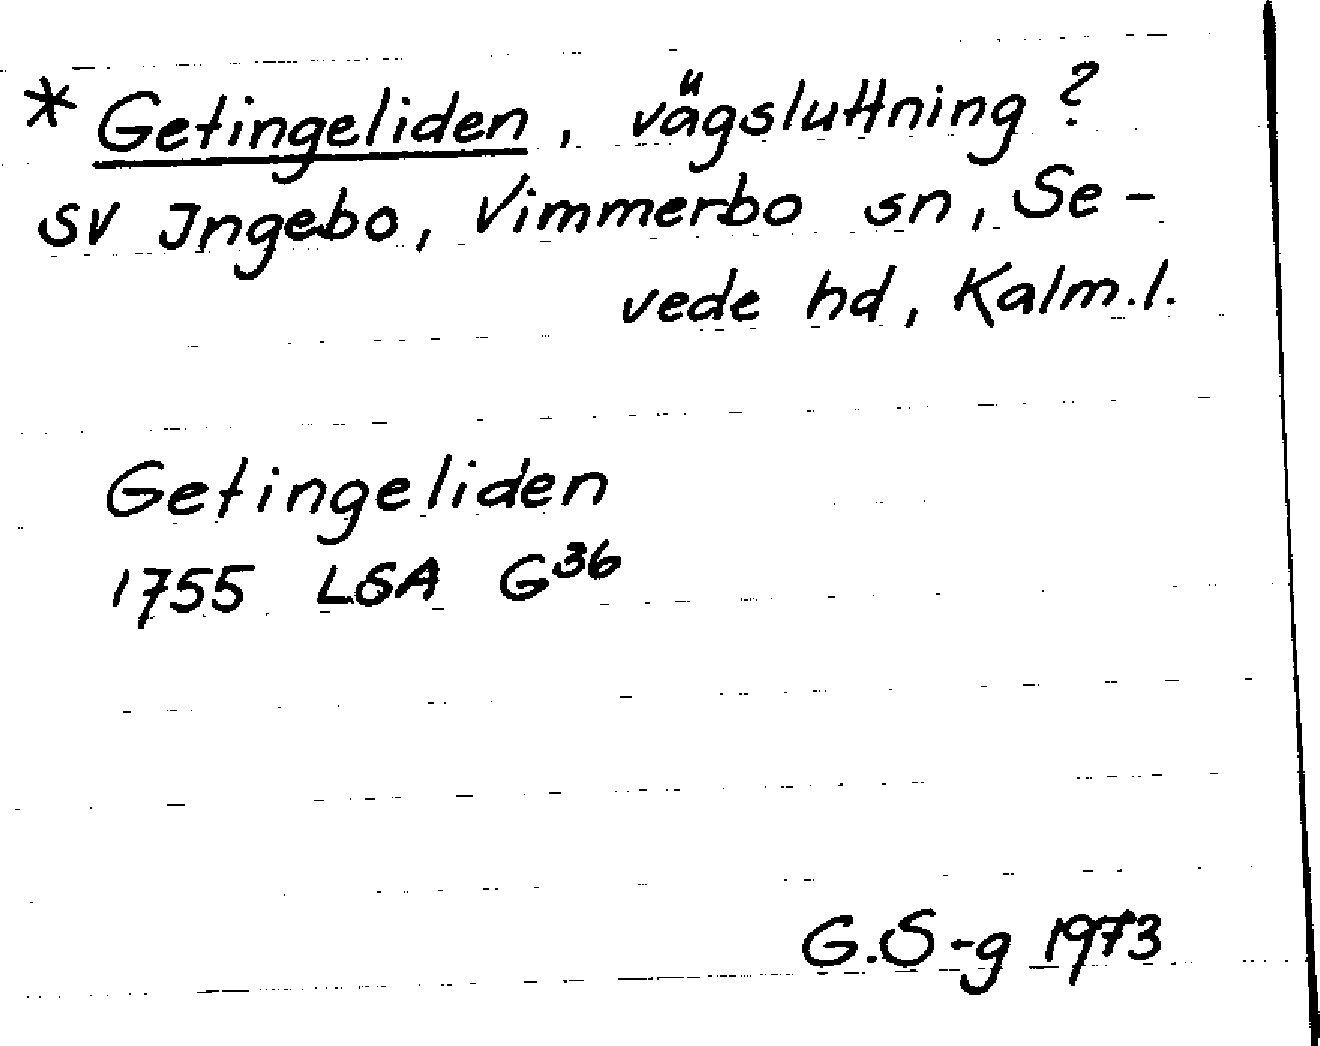 * Getingeliden, vägsluttning?
SV Ingebo, Vimmerbo sn, Se-
vede hd, Kalm.l.
Getingeliden
1755 LSA G36
G.S-g 1973